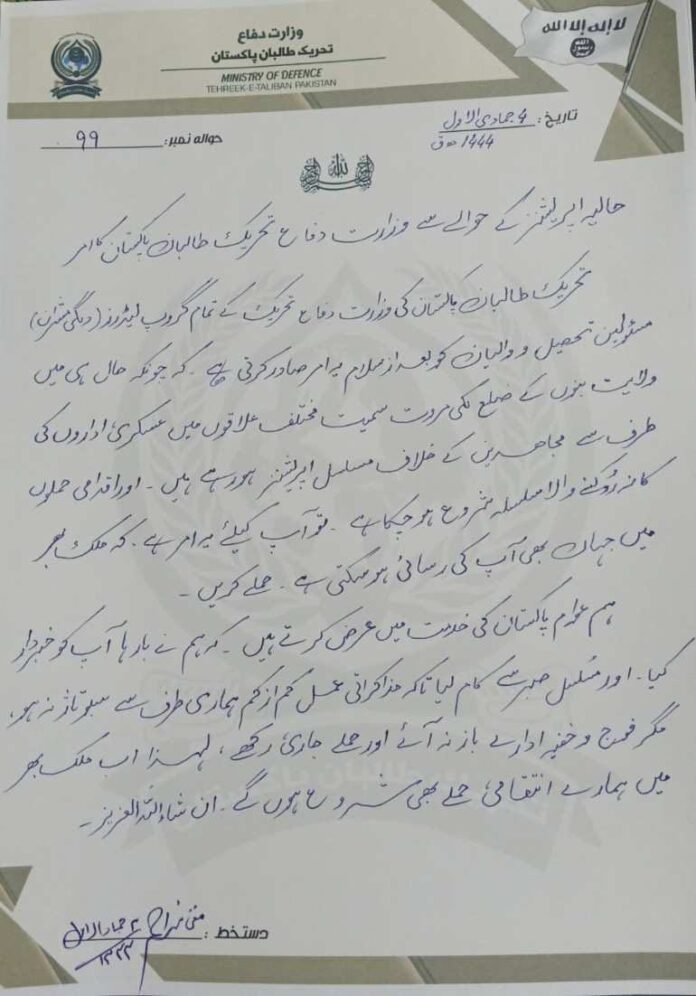 وزارت دفاع
تحریک طالبان پاکستان
MINISTRY OF DEFENCE
TEHREEK-E-TALIBAN PAKISTAN
لا إله إلا الله
الله
رسول
محمد
تاریخ: 4 جمادی الاول
1444 ھ ق
حوالہ نمبر: 99
حالیہ اپریشنز کے حوالے سے وزارت دفاع تحریک طالبان پاکستان کا امر
تحریک طالبان پاکستان کی وزارت دفاع تحریک کے تمام گروپ لیڈروز (دلگی مشران)
مسئولین تحصیل و والیان کو بعد از سلام یہ امر صادر کرتی ہے۔ کہ چونکہ حال ہی میں
ولایت بنوں کے ضلع لکی مروت سمیت مختلف علاقوں میں عسکری اداروں کی
طرف سے مجاہدین کے خلاف مسلسل اپریشنز ہورہے ہیں۔ اور اقدامی حملوں
کا نہ رُکنے والا سلسلہ شروع ہو چکا ہے۔ تو آپ کیلئے یہ امر ہے۔ کہ ملک بھر
میں جہاں بھی آپ کی رسائی ہوسکتی ہے۔ حملے کریں۔
ہم عوام پاکستان کی خدمت میں عرض کرتے ہیں۔ کہ ہم نے بارہا آپ کو خبردار
کیا۔ اور مسلسل صبر سے کام لیا تاکہ مذاکراتی عمل کم از کم ہماری طرف سے سبوتاژ نہ ہو،
مگر فوج و خفیہ ادارے باز نہ آئے اور حملے جاری رکھے، لہذا اب ملک بھر
میں ہمارے انتقامی حملے بھی شروع ہوں گے۔ ان شاءاللہ العزیز۔
دستخط: مفتی مزاحم ۴ جماد الاول